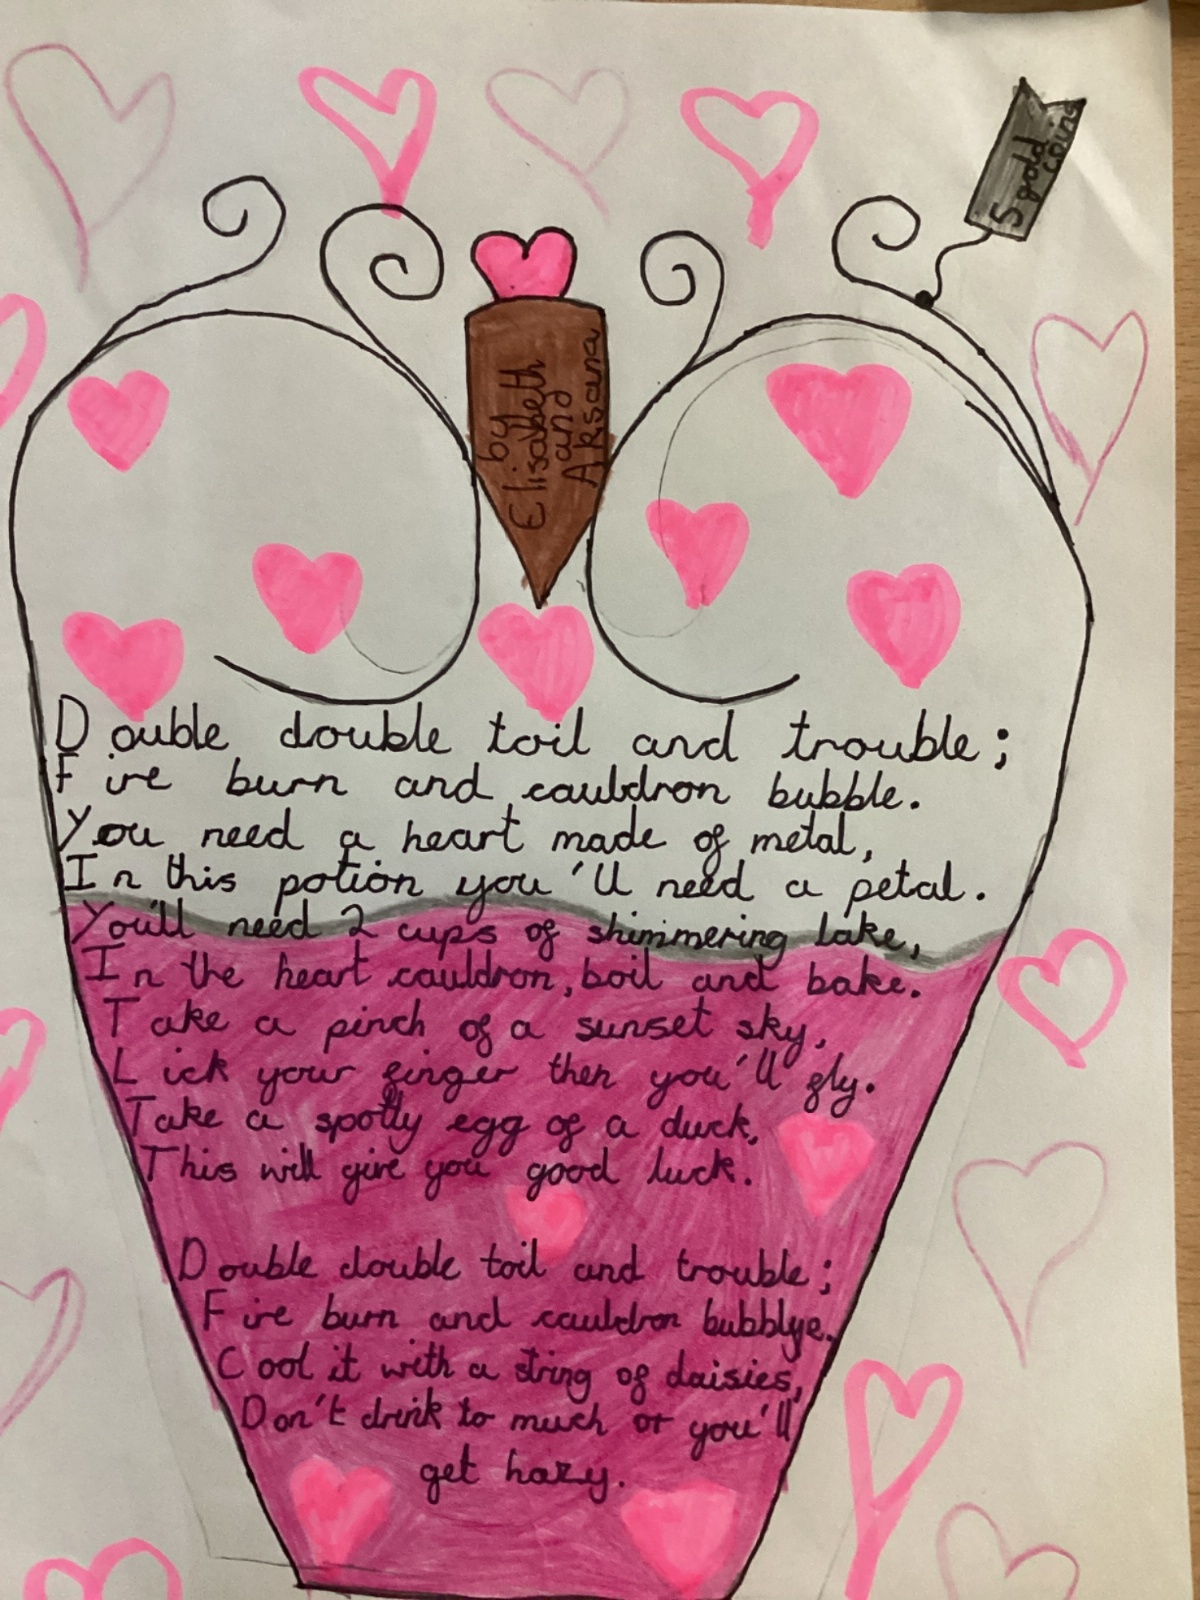 5 gold
coins
by
Elisabeth
and
Aksana
Double double toil and trouble;
Fire burn and cauldron bubble.
You need a heart made of metal,
In this potion you'll need a petal.
You'll need 2 cups of shimmering lake,
In the heart cauldron, boil and bake.
Take a pinch of a sunset sky,
Lick your finger then you'll fly.
Take a spotty egg of a duck,
This will give you good luck.
Double double toil and trouble;
Fire burn and cauldron bubblye.
Cool it with a string of daisies,
Don't drink to much or you'll
get hazy.